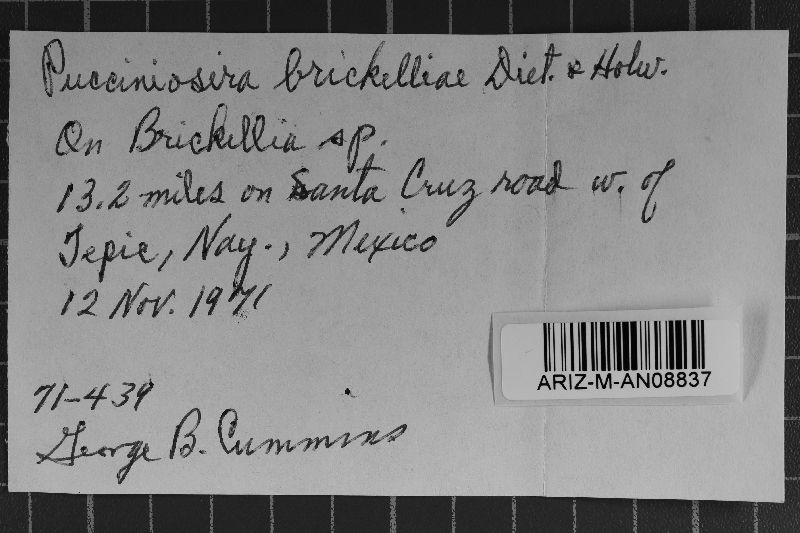 Pucciniosira brickelliae Diet. & Holw.
On Brickellia sp.
13.2 miles on Santa Cruz road w. of
Tepic, Nay., Mexico
12 Nov. 1971
ARIZ-M-AN08837
71-439
George B. Cummins